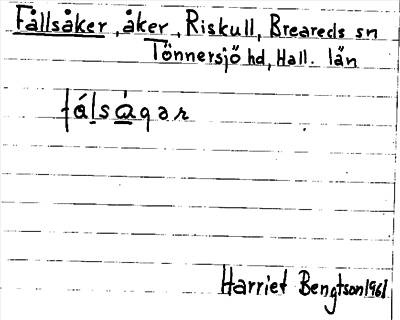 Fållsåker, åker, Riskull, Breareds sn
Tönnersjö hd, Hall. län
fálsågar
Harriet Bengtson 1961